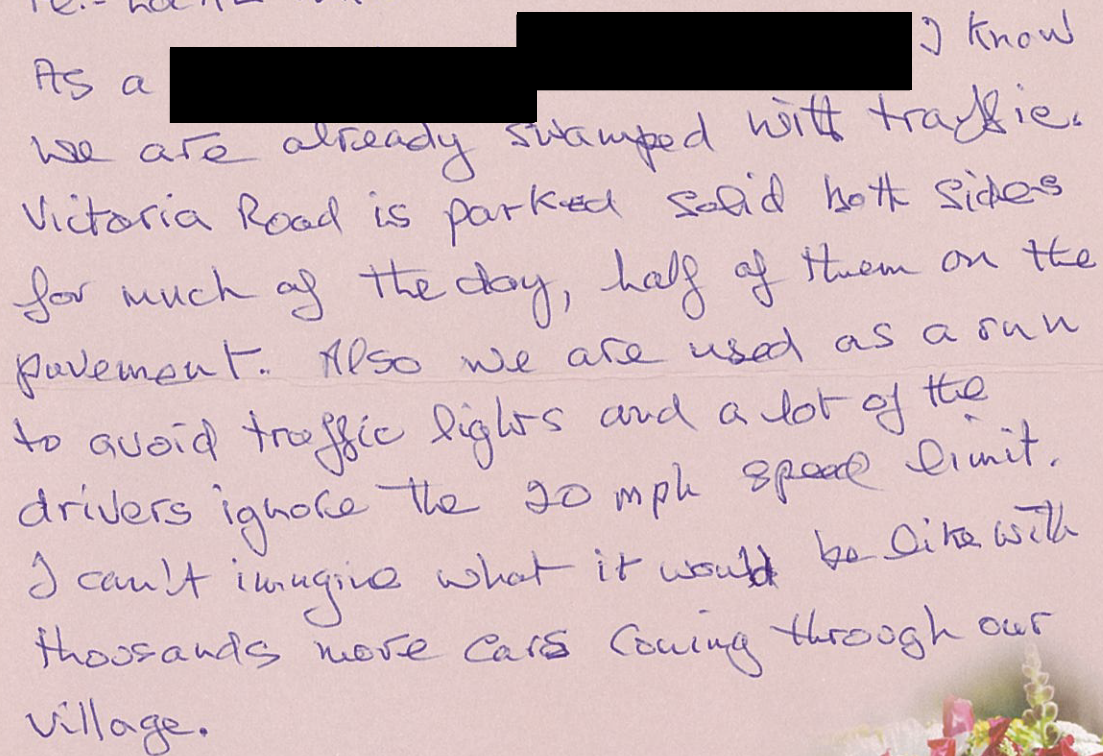 As a I know
we are already swamped with traffic.
Victoria Road is parked solid both sides
for much of the day, half of them on the
pavement. Also we are used as a run
to avoid traffic lights and a lot of the
drivers ignore the 20 mph speed limit.
I can't imagine what it would be like with
thousands more cars coming through our
village.